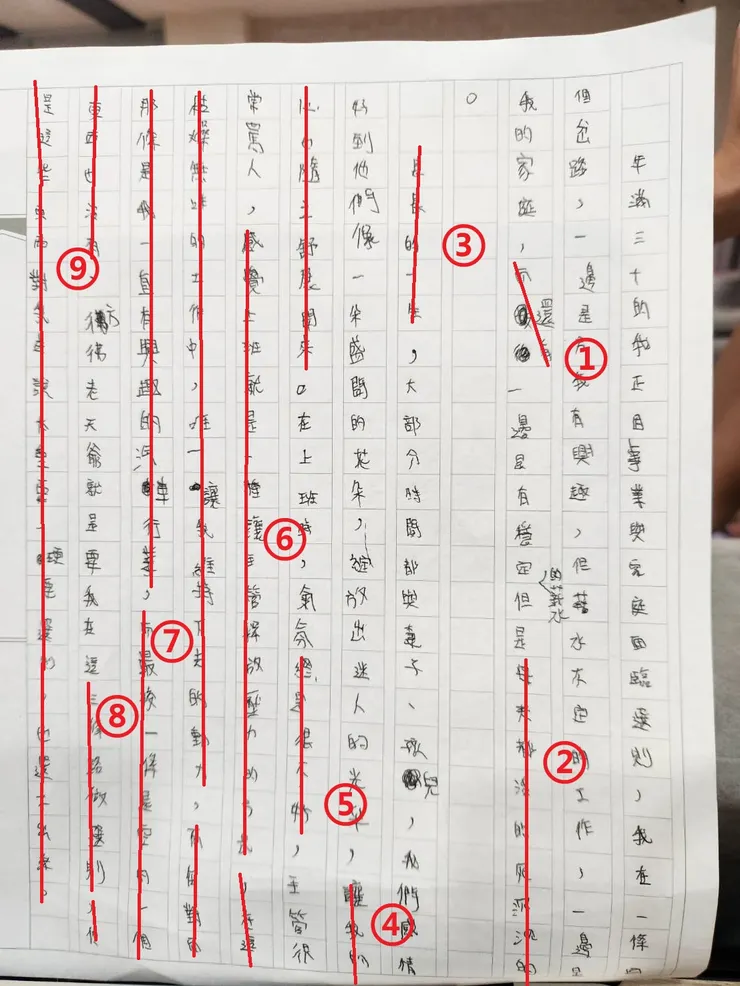 年滿三十的我正因事業與家庭面臨選則，我在一條四
個岔路，一邊是有我有興趣，但薪水不定的工作，一邊是
我的家庭，而還有一邊是有穩定的薪水但是每天都活的死沉沉的
。
長長的一生，大部分時間都與妻子、孩兒，我們感情
好到他們像一朵盛開的花朵，綻放出迷人的光彩，讓我的
心也隨之舒展開來。在上班時，氣氛總是很不妙，主管很
常罵人，感覺上班就是一種讓主管釋放壓力的方式，在這
枯燥無味的工作中，唯一讓我維持下去的動力，而面對
那條是我一直有興趣的汽車行業，而最後一條是空的一個
東西也沒有，彷彿老天爺就是要我在這三條路做選則，但
是這些東西對我來說太重要，硬要選的，也選不出來。
①
②
③
④
⑤
⑥
⑦
⑧
⑨